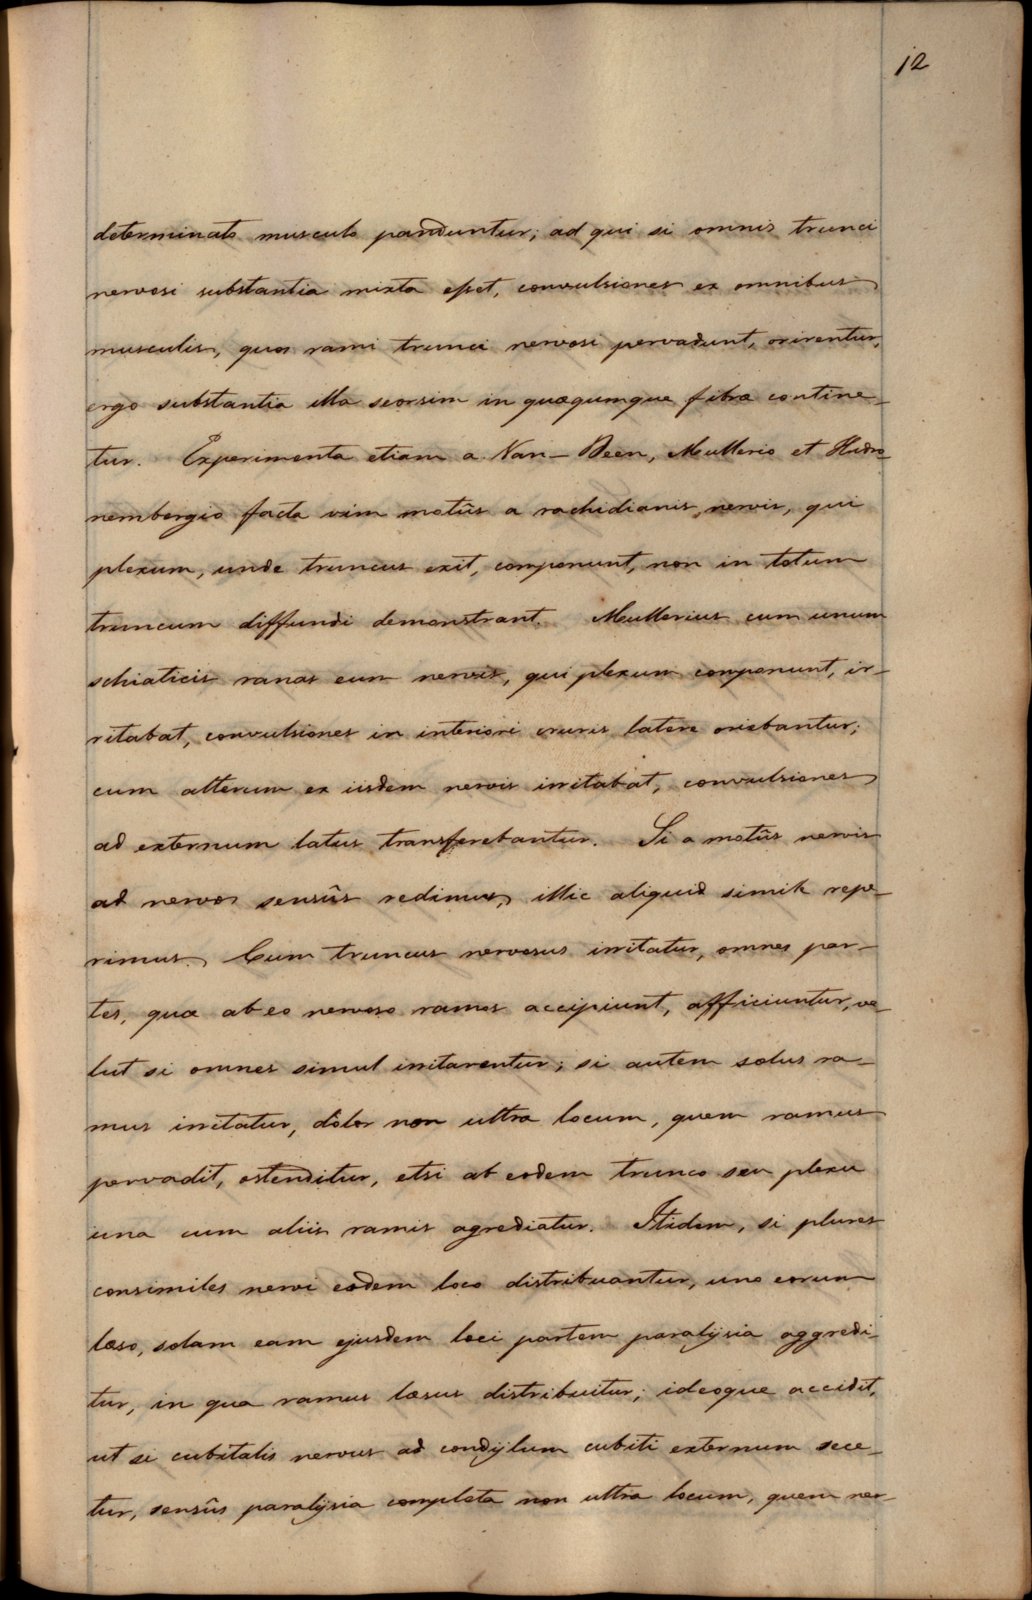 12
determinato musculo panduntur; ad qui si omnis trunci
nervosi substantia mixta esset, convulsiones ex omnibus
musculis, quos rami trunci nervosi pervadunt, orirentur,
ergo substantia illa seorsim in quaqumque fibra contine-
tur. Experimenta etiam a Van-Deen, Mullerio et Hidro-
nembergio facta vim motûs a rachidianis nervis, qui
plexum, unde truncus exit, componunt, non in totum
truncum diffundi demonstrant. Mullerius cum unum
schiaticis ranas eum nervis, qui plexum componunt, ir-
ritabat, convulsiones in interiori cruris latere oriebantur;
cum alterum ex iisdem nervis irritabat, convulsiones
ad externum latus transferebantur. Si a motûs nervis
ad nervos sensûs redimus, illic aliquid simile repe-
rimus. Cum truncus nervosus irritatur, omnes par-
tes, quæ ab eo nervoso ramos accipiunt, afficiuntur, ve-
lut si omnes simul irritarentur; si autem solus ra-
mus irritatur, dolor non ultra locum, quem ramus
pervadit, ostenditur, etsi ab eodem trunco seu plexu
una cum aliis ramis agrediatur. Itidem, si plures
consimiles nervi eodem loco distribuantur, uno eorum
læso, solam eam ejusdem loci partem paralysia aggredi-
tur, in qua ramus læsus distribuitur; ideoque accidit,
ut si cubitalis nervus ad condylum cubiti externum sece-
tur, sensûs paralysia completa non ultra locum, quem ner-